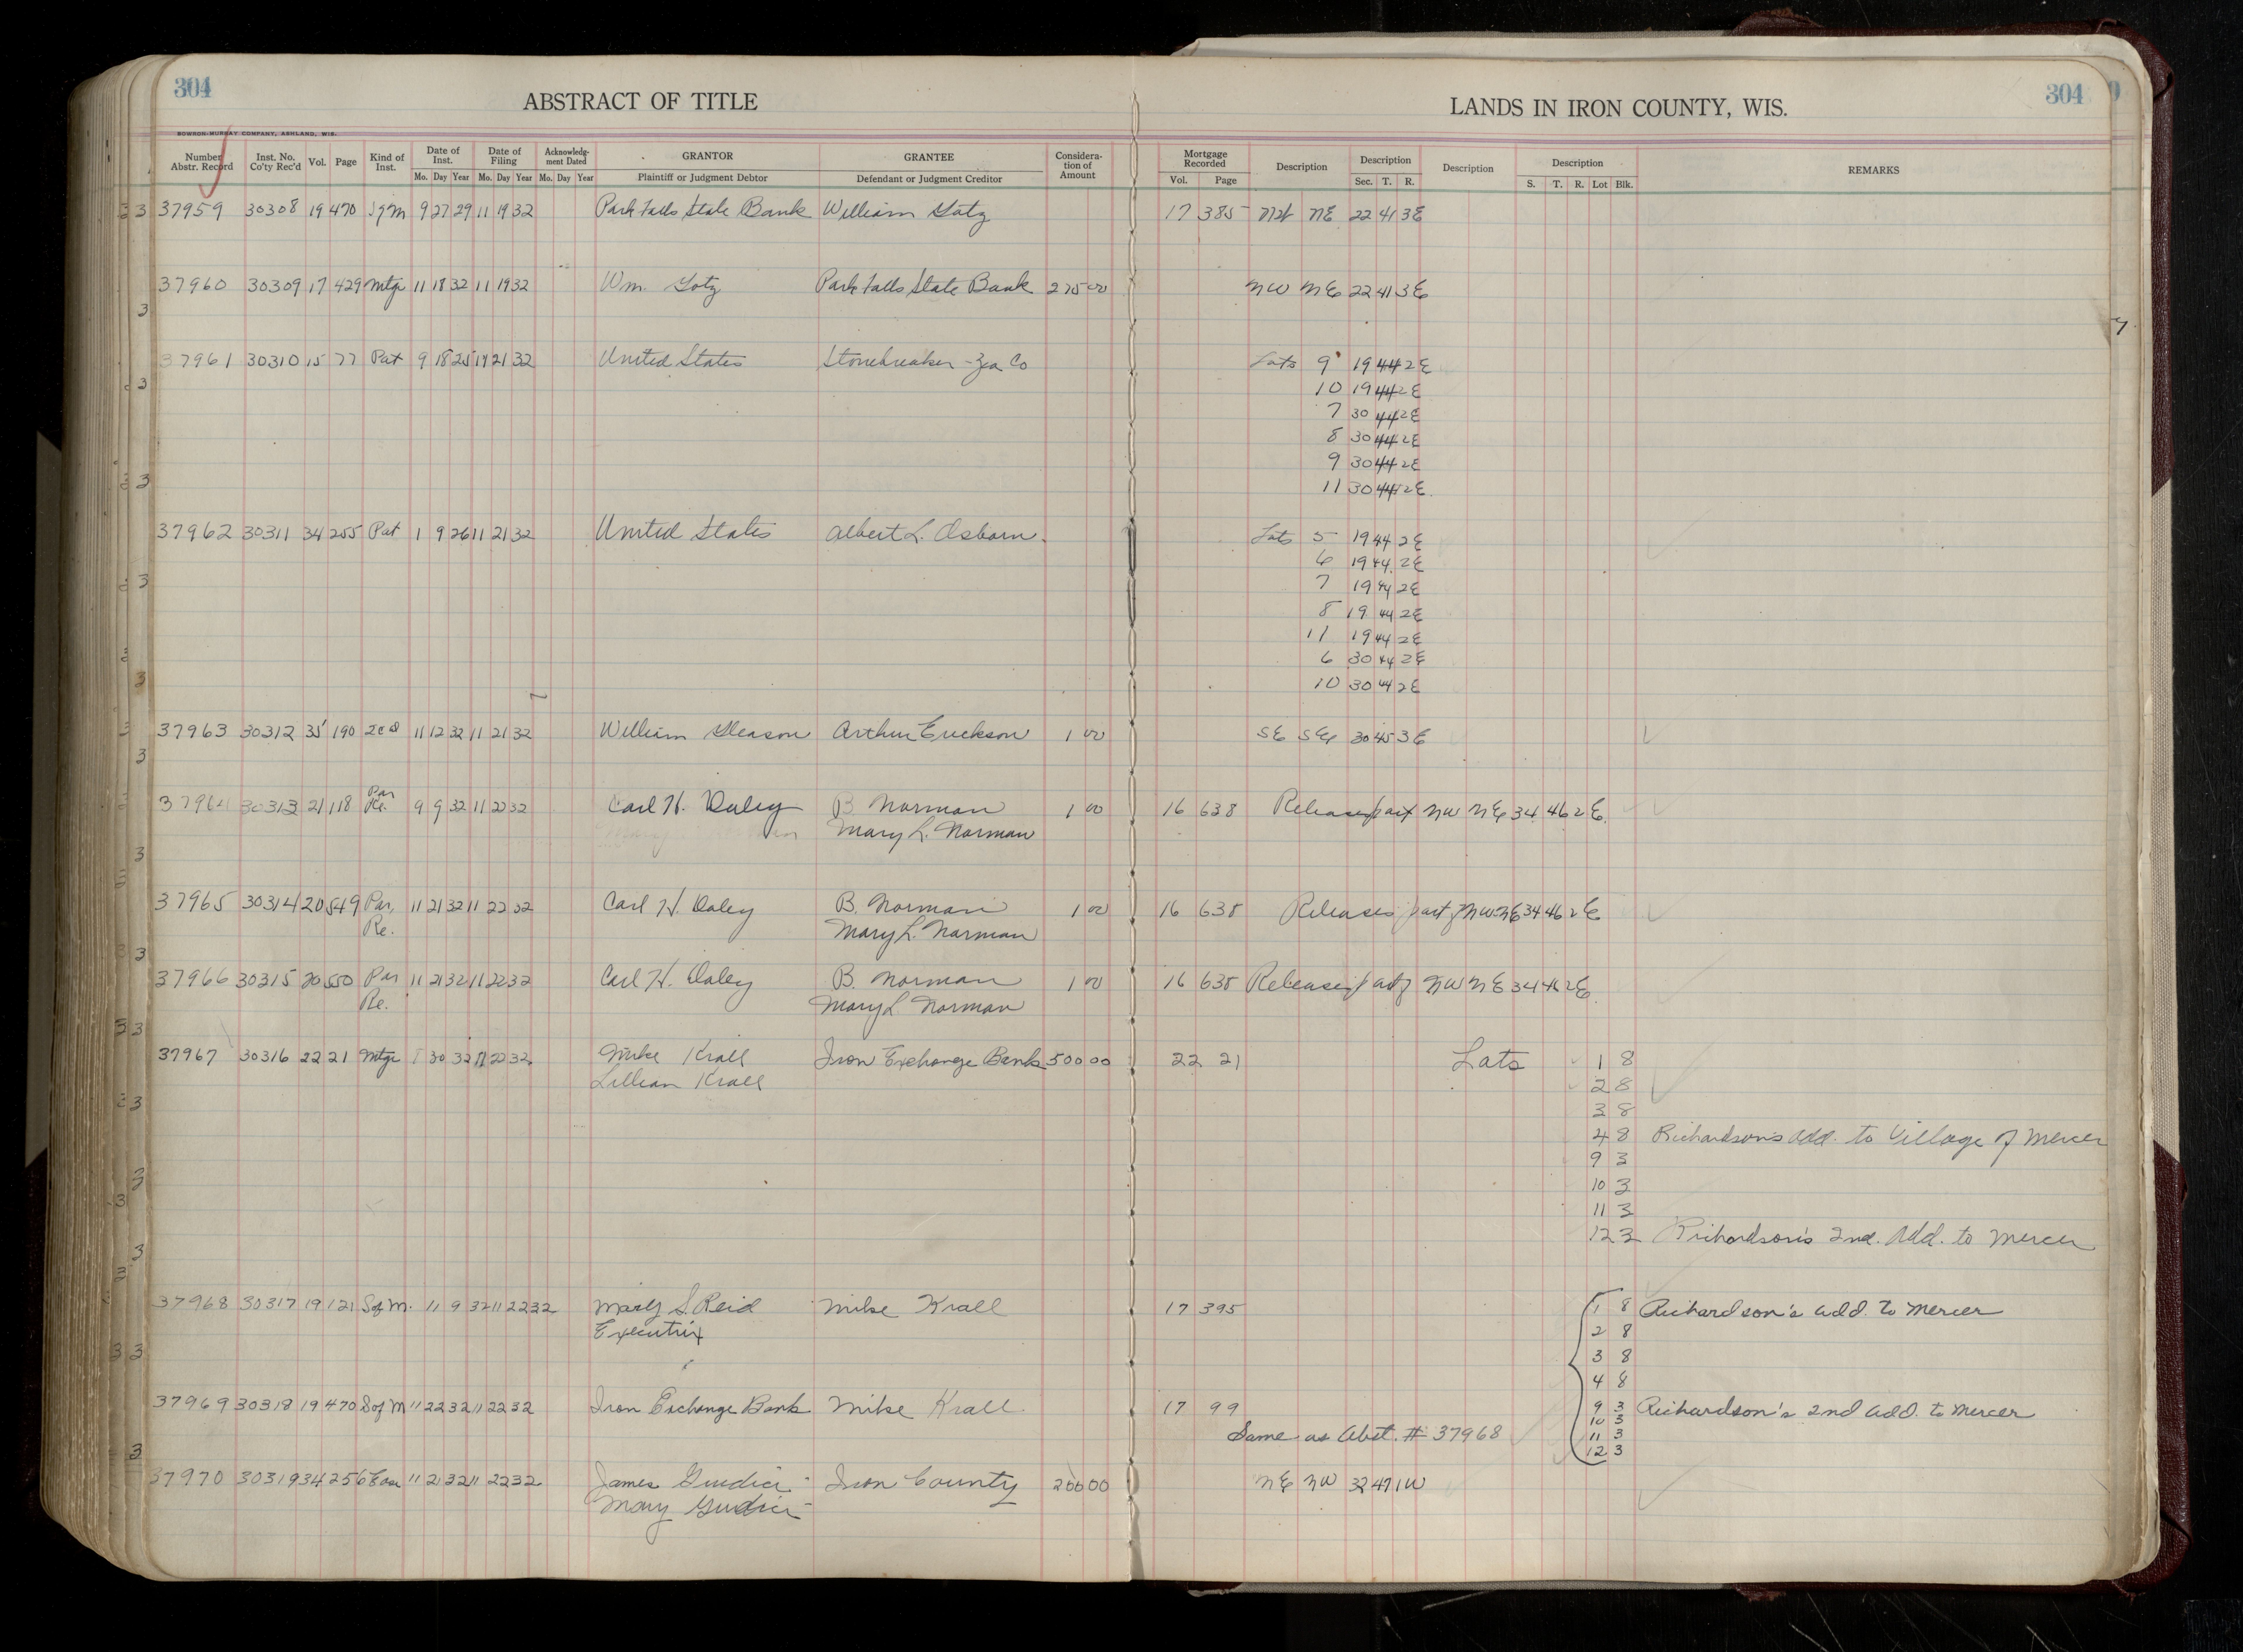 304
ABSTRACT OF TITLE
LANDS IN IRON COUNTY, WIS.
304
BOWRON-MURRAY COMPANY, ASHLAND, WIS.
Number Abstr. Record Inst. No. Co'ty Rec'd Vol. Page Kind of Inst. Date of Inst. Date of Filing Acknowledgment Dated GRANTOR GRANTEE Consideration of Amount Mortgage Recorded Description Description Description Description REMARKS
Mo. Day Year Mo. Day Year Mo. Day Year Plaintiff or Judgment Debtor Defendant or Judgment Creditor Vol. Page Sec. T. R. S. T. R. Lot Blk.
37959 30308 19 470 S of M 9 27 29 11 19 32 Park Falls State Bank William Gotz 17 385 NE 22 41 3E
37960 30309 17 429 Mtge 11 18 32 11 19 32 Wm. Gotz Park Falls State Bank 275 00 NW NE 22 41 3E
37961 30310 15 77 Pat 9 18 25 11 21 32 United States Stonebreaker-Zea Co Lots 9 19 44 2E
10 19 44 2E
7 30 44 2E
8 30 44 2E
9 30 44 2E
11 30 44 2E
37962 30311 34 255 Pat 1 9 26 11 21 32 United States Albert L. Osborn Lots 5 19 44 2E
6 19 44 2E
7 19 44 2E
8 19 44 2E
11 19 44 2E
6 30 44 2E
10 30 44 2E
37963 30312 35 190 11 12 32 11 21 32 William Gleason Arthur Erickson 1 00 SE SE 30 45 3E
37964 30313 21 118 Par Re. 9 9 32 11 22 32 Carl H. Daley B Norman 1 00 16 638 Releases part NW NE 34 46 2E
Mary L. Norman
37965 30314 20 549 Par. 11 21 32 11 22 32 Carl H. Daley B. Norman 1 00 16 638 Releases part of NW NE 34 46 2E
Re. Mary L. Norman
37966 30315 20 550 Par 11 21 32 11 22 32 Carl H. Daley B. Norman 1 00 16 638 Releases part of NW NE 34 46 2E
Re. Mary L. Norman
37967 30316 22 21 Mtge 30 32 11 22 32 Mike Krall Iron Exchange Bank 500 00 22 21 Lots 1 8
Lillian Krall 2 8
3 8
4 8 Richardson's Add. to Village of Mercer
9 3
10 3
11 3
12 3 Richardson's 2nd. Add. to Mercer
37968 30317 19 121 S of M. 11 9 32 11 22 32 Mary S. Reid Mike Krall 17 395 1 8 Richardson's Add. to Mercer
Executrix 2 8
3 8
4 8
37969 30318 19 470 S of M 11 22 32 11 22 32 Iron Exchange Bank Mike Krall 17 99 9 3 Richardson's 2nd Add. to Mercer
10 3
Same as Abst. # 37968 11 3
12 3
37970 30319 34 256 Ease 11 21 32 11 22 32 James Giudici Iron County 200 00 NE NW 32 47 1W
Mary Giudici